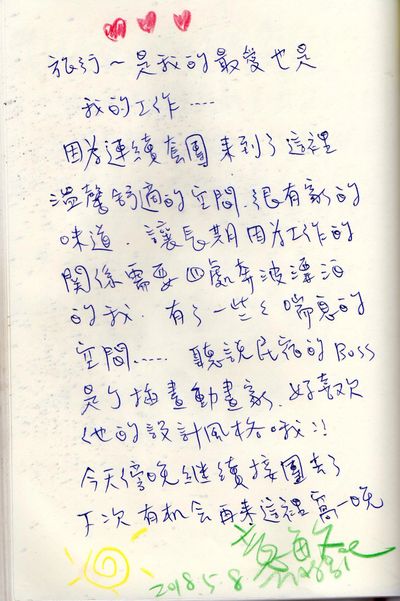 旅行~是我的最愛也是
我的工作....
因為連續套團來到了這裡
溫馨舒適的空間.很有家的
味道.讓長期因為工作的
關係需要四處奔波漂泊
的我.有了一些些喘息的
空間..... 聽說民宿的Boss
是个插畫動畫家.好喜欢
他的設計風格哦!!
今天傍晚繼續接團去了
下次有机会再來這裡窩一晚
2018.5.8